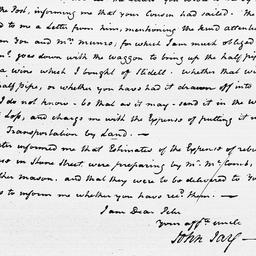 the Post, informing me that your Cousin had sailed. The
to me a Letter from him, mentioning the kind attent
on You and Mr. Munro, for which I am much obliged
goes down with the waggon to bring up the half pip
a wine which I bought of Slidell. Whether that w
half pipe, or whether you have had it drawn off into
I do not know - be that as it may - send it in the w
and charge me with the Expense of putting it
Transportation by Land. -
informed me that Estimates of the Expense of reb
in Stone Street were preparing by Mr. McComb,
ther mason. and that they were to be delivered to Yo
to inform me whether you have recd. them. -
I am Dear Peter
Your affte. uncle
John Jay -